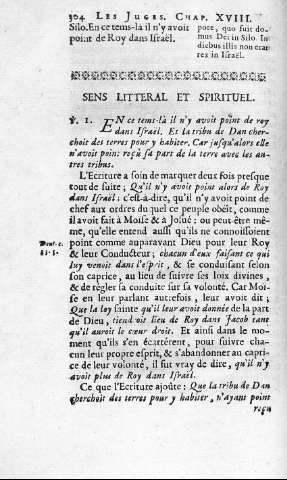 304 LES JUGES. CHAP. XVIII.
Silo. En ce tems-là il n'y avoit
point de Roy dans Israël.
pore, quo fuit do-
mus Dei in Silo. In
diebus illis non erat
rex in Israël.
SENS LITTERAL ET SPIRITUEL.
℣. 1. EN ce tems-là il n'y avoit point de roy
dans Israël. Et la tribu de Dan cher-
choit des terres pour y habiter. Car jusqu'alors elle
n'avoit point reçu sa part de la terre avec les au-
tres tribus.
L'Ecriture a soin de marquer deux fois presque
tout de suite; Qu'il n'y avoit point alors de Roy
dans Israël; c'est-à-dire, qu'il n'y avoit point de
chef aux ordres du quel ce peuple obéît, comme
il avoit fait à Moïse & à Josué; ou peut-être mê-
me, qu'elle entend aussi qu'ils ne connoissoient
point comme auparavant Dieu pour leur Roy
& leur Conducteur; chacun d'eux faisant ce qui
luy venoit dans l'esprit, & se conduisant selon
son caprice, au lieu de suivre ses loix divines,
& de régler sa conduite sur sa volonté. Car Moï-
se en leur parlant autrefois, leur avoit dit;
Que la loy sainte qu'il leur avoit donnée de la part
de Dieu, tiendroit lieu de Roy dans Jacob tant
qu'il auroit le cœur droit. Et ainsi dans le mo-
ment qu'ils s'en écartérent, pour suivre cha-
cun leur propre esprit, & s'abandonner au capri-
ce de leur volonté, il fut vray de dire, qu'il n'y
avoit plus de Roy dans Israël.
Ce que l'Ecriture ajoûte; Que la tribu de Dan
cherchoit des terres pour y habiter, n'ayant point
reçu
Deut. c.